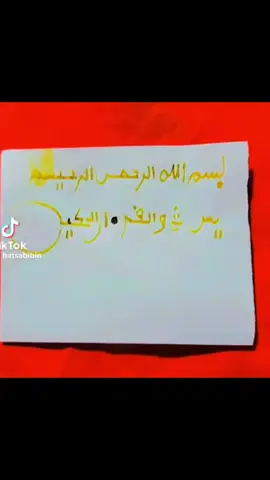 بسم الله الرحمن الرحيم
يس والقر ان الحكيم
TikTok
hatsabibin